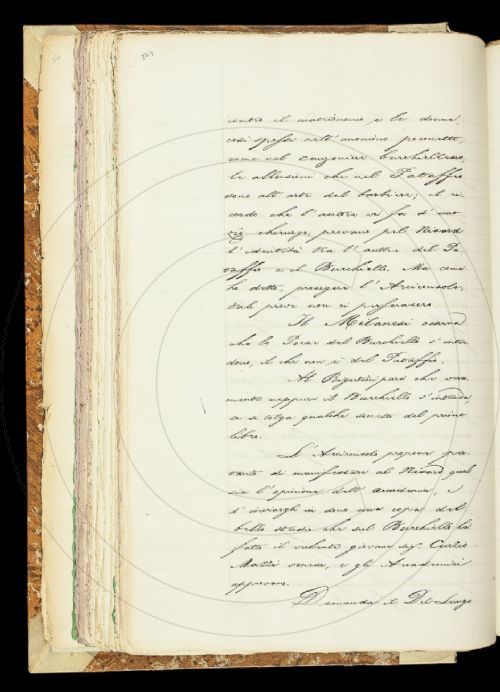 524
contro il matrimonio e le donne,
così spesse nell'anonimo poemetto,
come nel canzoniere burchiellesco,
le allusioni che nel Pataffio
sono all'arte del barbiere; il ri-
cordo che l'autore vi fa d'un
chirurgo, provano pel Nisard
l'identità tra l'autore del Pa-
taffio e il Burchiello. Ma come
ho detto, prosegue l'Arciconsolo,
tali prove non ci persuasero.
Il Milanesi osserva
che le Poesie del Burchiello s'inten-
dono, il che non è del Pataffio.
Al Rigutini pare che vera-
mente neppure il Burchiello s'intenda
se si tolga qualche sonetto del primo
libro.
L'Arciconsolo propone
di manifestare al Nisard qual
sia l'opinione dell'Accademia, e
d'inviargli in dono una copia del
bello studio che sul Burchiello ha
fatto il valente giovane sigr. Curzio
Mazzi senese, e gli Accademici
approvano.
Domanda il Del Lungo